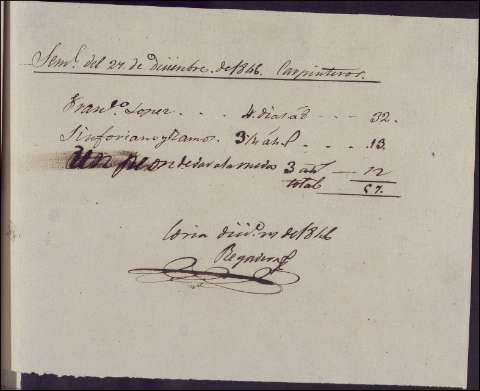 Semª. del 27. de Diciembre. de 1846. Carpinteros.
Franco. Lopez . . . 4. dias á 8 - - - 32.
Sinforiano Ramos. 3 1/4 á 4 - - . 13.
Un peon de dar a la rueda 3 á 4 — 12
total 57.
Coria dic.e 27 de 1846
Regadera